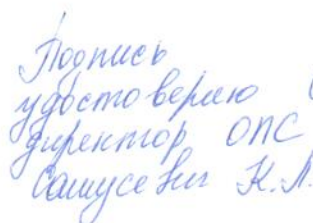 Подпись
удостоверяю
директор ОПС
Самусевич К.Л.